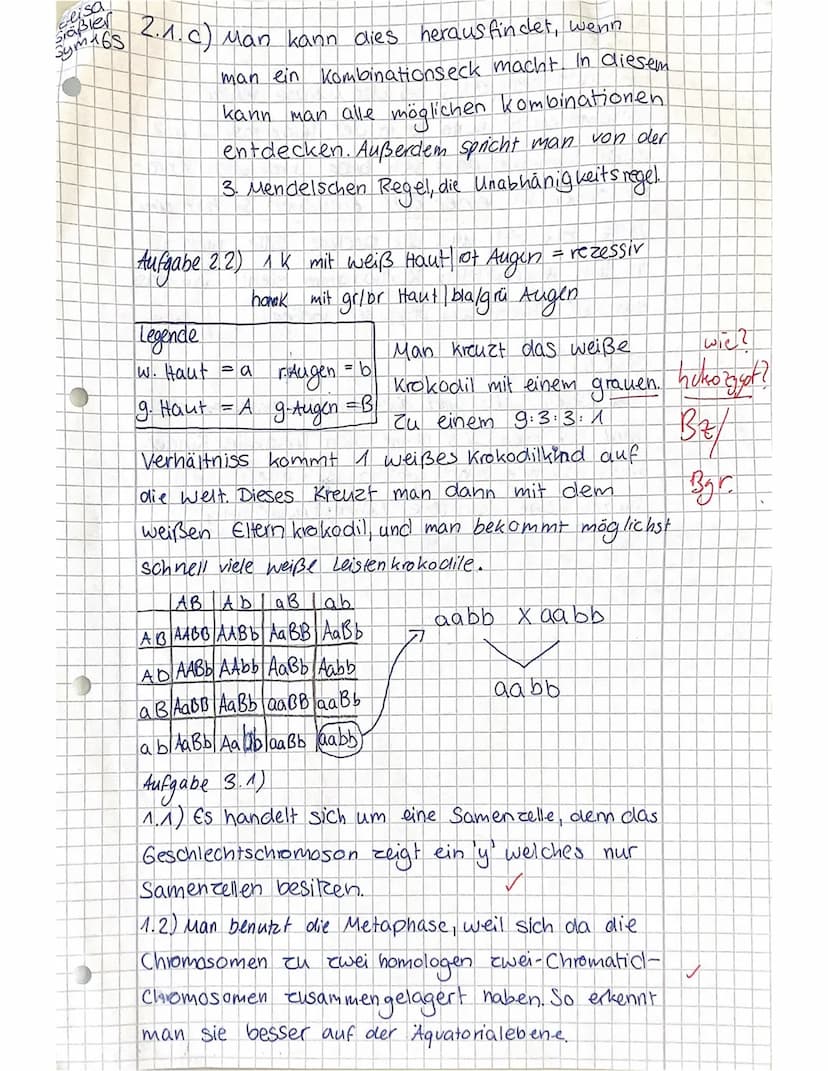 Geisa
Gräßler
Gym16S
2.1.c) Man kann dies herausfindet, wenn
man ein Kombinationseck macht. In diesem
kann man alle möglichen Kombinationen
entdecken. Außerdem spricht man von der
3. Mendelschen Regel, die Unabhänigkeitsregel.
Aufgabe 2.2) 1 K mit weiß Haut/rot Augen = rezessiv
mit gr/br Haut/bla/grü Augen
Legende
w. Haut = a r.Augen = b
g. Haut = A g-Augen = B
Man kreuzt das weiße
Krokodil mit einem grauen.
Zu einem 9:3:3:1
wie?
Bz/
Bgr.
Verhältniss kommt 1 weißes Krokodilkind auf
die Welt. Dieses kreuzt man dann mit dem
weißen Elternkrokodil, und man bekommt möglichst
schnell viele weiße Leistenkrokodile.
AB Ab aB ab
AB AABB AABb AaBB AaBb
Ab AABb AAbb AaBb Aabb
aB AaBB AaBb aaBB aaBb
ab AaBb Aabb aaBb aabb
aabb x aabb
aabb
Aufgabe 3.1)
1.1) Es handelt sich um eine Samenzelle, denn das
Geschlechtschromoson zeigt ein 'y' welches nur
Samenzellen besitzen.
1.2) Man benutzt die Metaphase, weil sich da die
Chromosomen zu zwei homologen zwei-Chromatid-
Chromosomen zusammengelagert haben. So erkennt
man sie besser auf der Äquatorialebene.